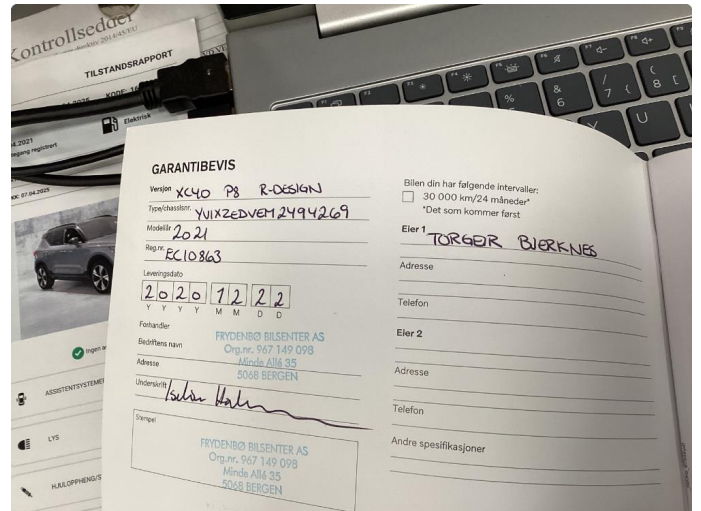 Kontrollsedde
direktiv 2014/45/EU
TILSTANDSRAPPORT
KODE: 16
.2025
Elektrisk
4.2021
egang registrert
KK: 07.04.2025
Ingen
ASSISTENTSYSTEME
LYS
HJULOPPHENG/S
GARANTIBEVIS
Versjon XC40 P8 R-DESIGN
Type/chassisnr. YV1XZEDVEM2494269
Modellår 2021
Reg.nr. EC10863
Leveringsdato
2020 12 22
Y Y Y Y M M D D
Forhandler
Bedriftens navn
FRYDENBØ BILSENTER AS
Org.nr. 967 149 098
Adresse
Minde Allé 35
5068 BERGEN
Underskrift
Stempel
FRYDENBØ BILSENTER AS
Org.nr. 967 149 098
Minde Allé 35
5068 BERGEN
Bilen din har følgende intervaller:
30 000 km/24 måneder*
*Det som kommer først
Eier 1 TORGEIR BJERKNES
Adresse
Telefon
Eier 2
Adresse
Telefon
Andre spesifikasjoner